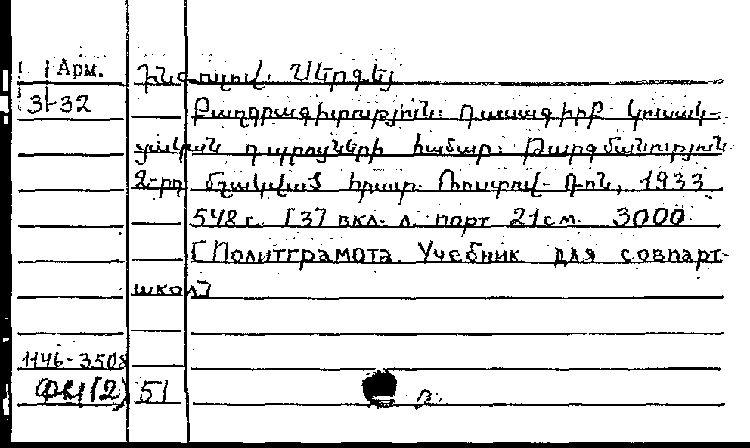 Арм. Ինգուլով. Սերգեյ
31-32 Քաղգրագիտություն: Դասագիրք կուսակ-
ցական դպրոցների համար: Թարգմանություն
2-րդ մշակված հրատ. Ռոստով-Դոն, 1933
548 г. [37 вкл. л. порт 21 см. 3000
[Политграмота. Учебник для совпарт-
школ]
1146-3508
51